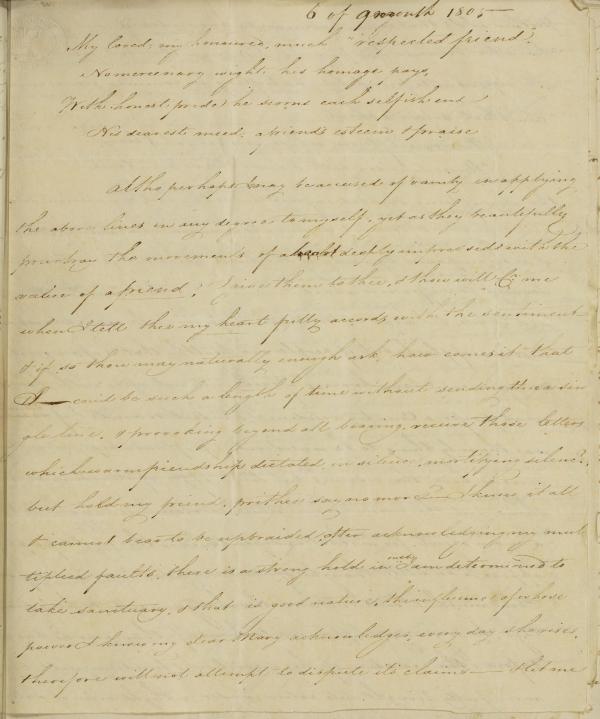 6 of 9 month 1805 —
My loved, my honoured, much "respected friend"!
No mercenary wight his homage pays,
With honest pride he scorns each selfish end
His dearest meed; a friend's esteem & praise
Altho perhaps I may be accused of vanity in applying
the above lines in any degree to myself, yet as they beautifully
pourtray the movements of a heart deeply impressed with the
value of a friend; I give them to thee, & thou will me
when I tell thee my heart fully accords with the sentiment
& if so thou may naturally enough ask, how comes it that
I — could be such a length of time without sending thee a sin
gle line, & provoking beyond all bearing, receive those letters
which warm friendship dictated in silence, mortifying silence,
but hold my friend, prithee say no more — I know it all
& cannot bear to be upbraided, after acknowledging my mul
tiplied faults, there is a strong hold in which I am determined to
take sanctuary, & that is good nature, the influence of whose
power I know my dear Mary acknowledges, every day she rises,
therefore will not attempt to dispute its claims — & let me